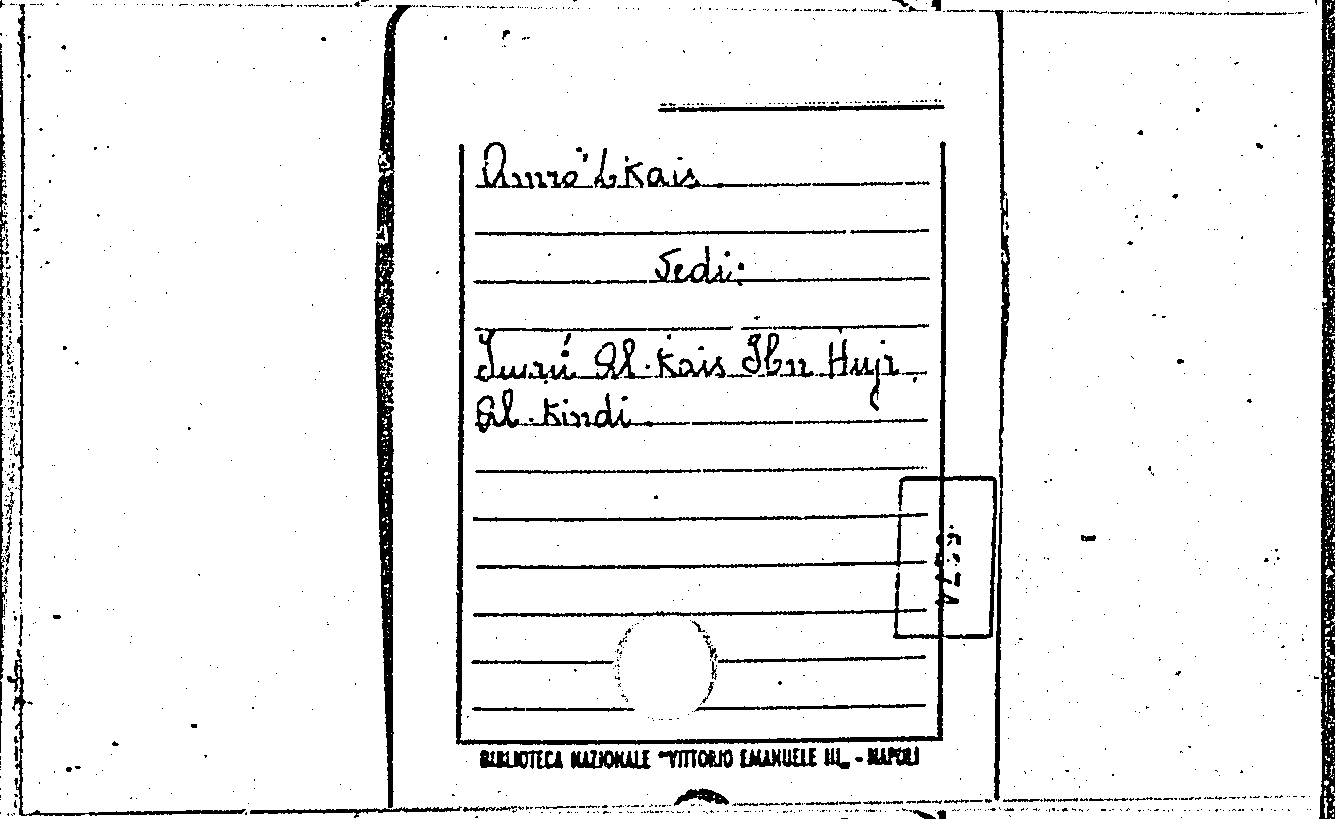 Amro' Lkais
Vedi:
Imrú Al-Kais Ibn Hujr
Al-Kindi
BIBLIOTECA NAZIONALE "VITTORIO EMANUELE III„ - NAPOLI